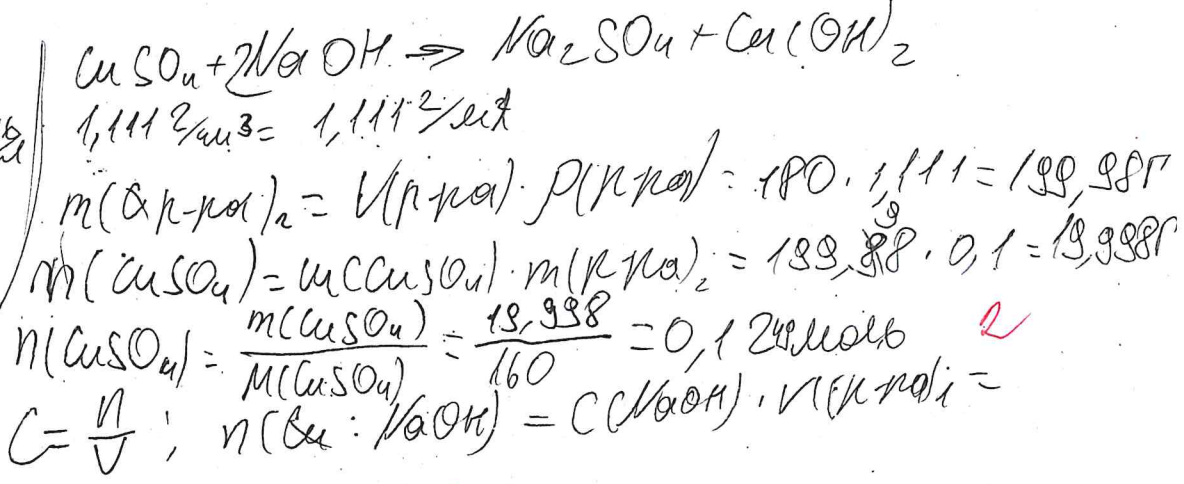 CuSO₄ + 2NaOH → Na₂SO₄ + Cu(OH)₂
1,111 г/см³ = 1,111 г/мл
m(р-ра)₂ = V(р-ра) · ρ(р-ра) = 180 · 1,111 = 199,98г
m(CuSO₄) = ω(CuSO₄) · m(р-ра)₂ = 199,98 · 0,1 = 19,998г
n(CuSO₄) = m(CuSO₄)/M(CuSO₄) = 19,998/160 = 0,1249моль 2
C = n/V ; n(NaOH) = C(NaOH) · V(р-ра)₁ =